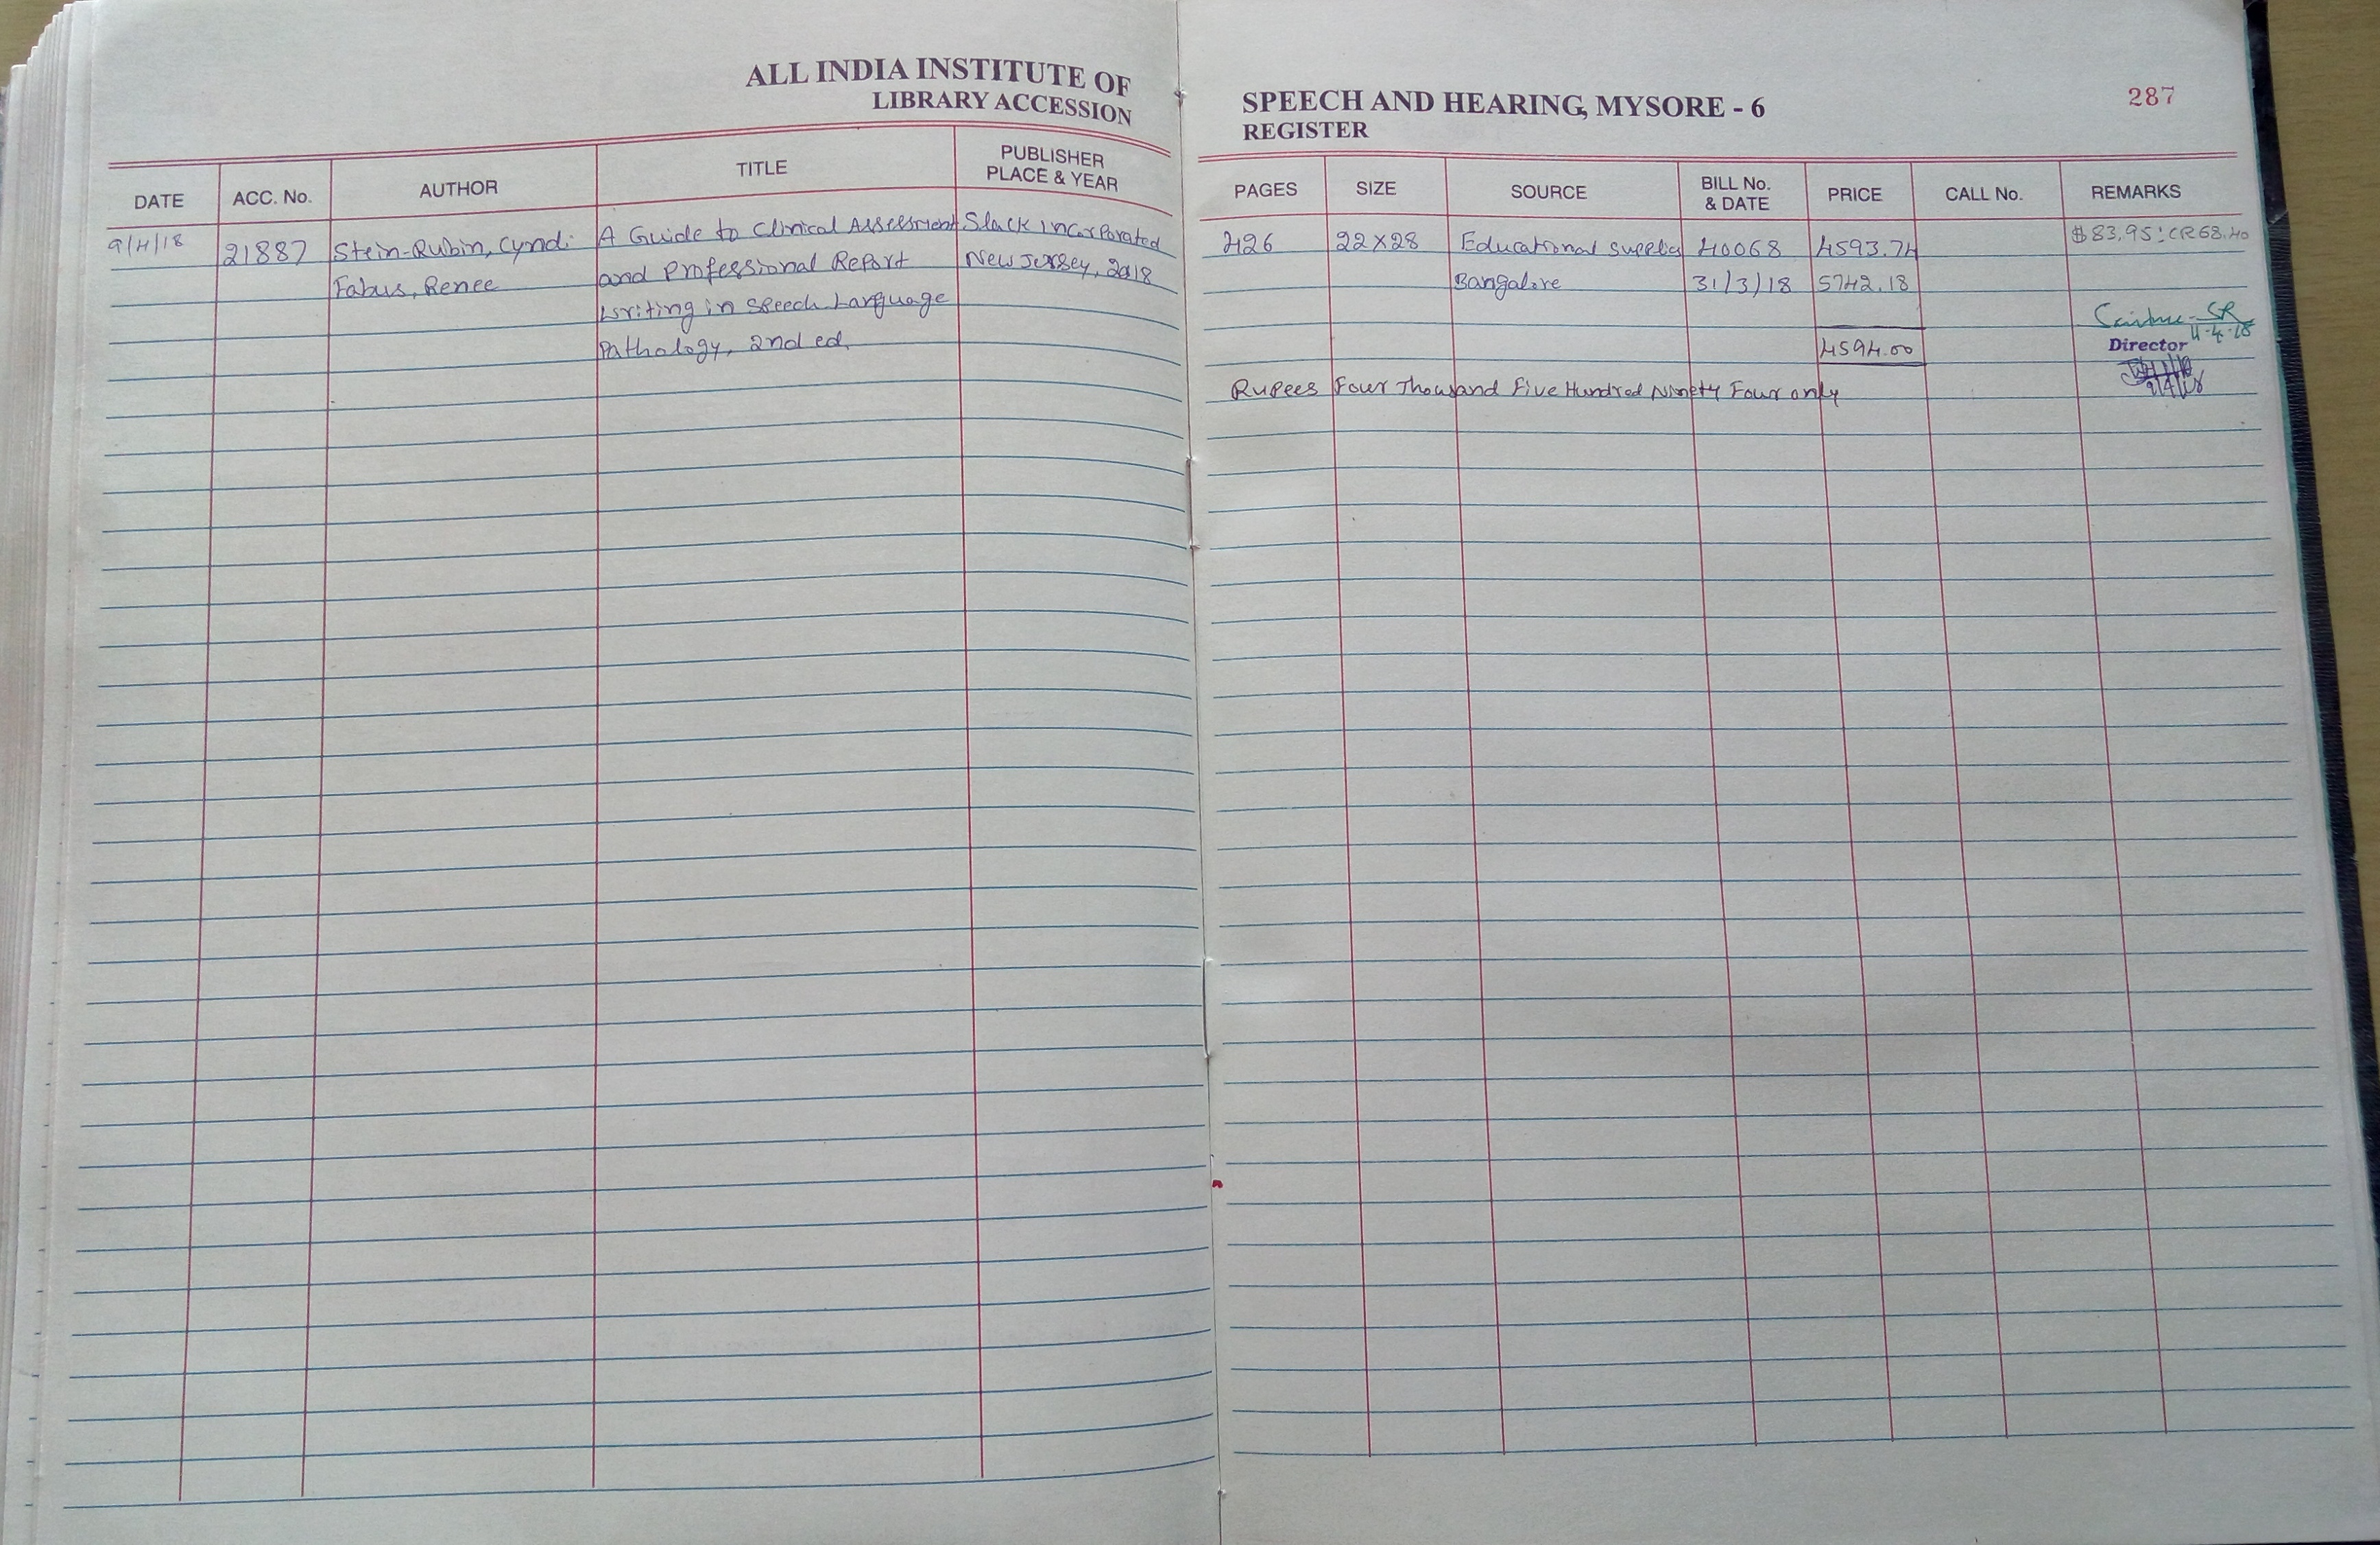 ALL INDIA INSTITUTE OF
LIBRARY ACCESSION
DATE ACC. No. AUTHOR TITLE PUBLISHER PLACE & YEAR
9/4/18 21887 Stein-Rubin, Cyndi A Guide to Clinical Assessment Slack Incorporated
Fabus, Renee and Professional Report New Jersey, 2018
Writing in Speech Language
Pathology, 2nd ed.
SPEECH AND HEARING, MYSORE - 6 287
REGISTER
PAGES SIZE SOURCE BILL No. & DATE PRICE CALL No. REMARKS
426 22X28 Educational supplies 40068 4593.74 $83.95:CR68.40
Bangalore 31/3/18 5742.18
11-4-18
4594.00 Director
Rupees Four Thousand Five Hundred Ninety Four only 9/4/18